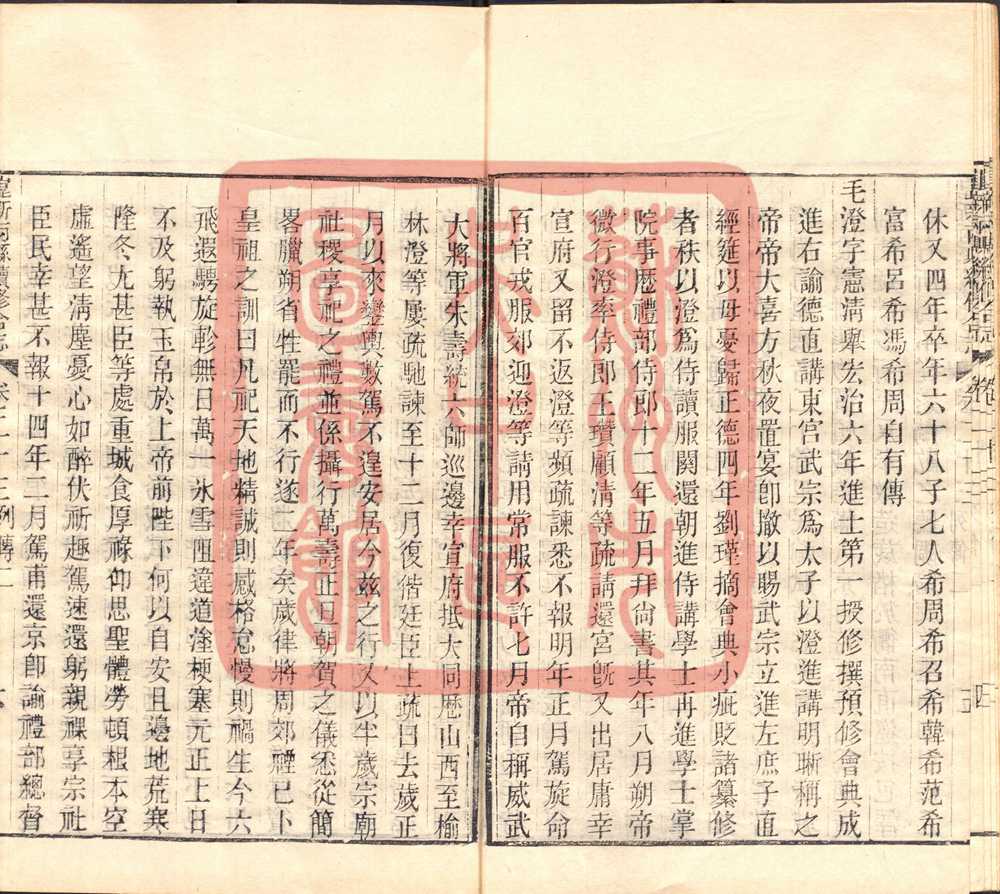 休又四年卒年六十八子七人希周希召希韓希范希
富希呂希馮希周自有傳
毛澄字憲清舉宏治六年進士第一授修撰預修會典成
進右諭德直講東宮武宗爲太子以澄進講明晰稱之
帝帝大喜方秋夜置宴卽撤以賜武宗立進左庶子直
經筵以母憂歸正德四年劉瑾摘會典小疵貶諸纂修
者秩以澄爲侍讀服闋還朝進侍講學士再進學士掌
院事歴禮部侍郎十二年五月拜尚書其年八月朔帝
微行澄率侍郎王瓚顧清等疏請還宮旣又出居庸幸
宣府又留不返澄等頻疏諫悉不報明年正月駕旋命
百官戎服郊迎澄等請用常服不許七月帝自稱威武
大將軍朱壽統六師巡邊幸宣府抵大同歴山西至榆
林澄等屢疏馳諫至十二月復偕廷臣上疏曰去歲正
月以來鑾輿數駕不遑安居今兹之行又以半歲宗朝
社稷享祀之禮並係攝行萬壽正旦朝賀之儀悉從簡
畧臘朔省牲罷而不行遂二年矣歲律將周郊禋已卜
皇祖之訓曰凡祀天地精誠則感格怠慢則禍生今六
飛遐騁旋軫無日萬一氷雪阻違道途梗塞元正上日
不及躬執玉帛於上帝前陛下何以自安且邊地荒寒
隆冬尤甚臣等處重城食厚祿仰思聖體勞頓根本空
虛遙望淸塵憂心如醉伏祈趣駕速還躬親祼享宗社
臣民幸甚不報十四年二月駕甫還京卽諭禮部總督
崑新兩縣續修合志 卷二十三 列傳一